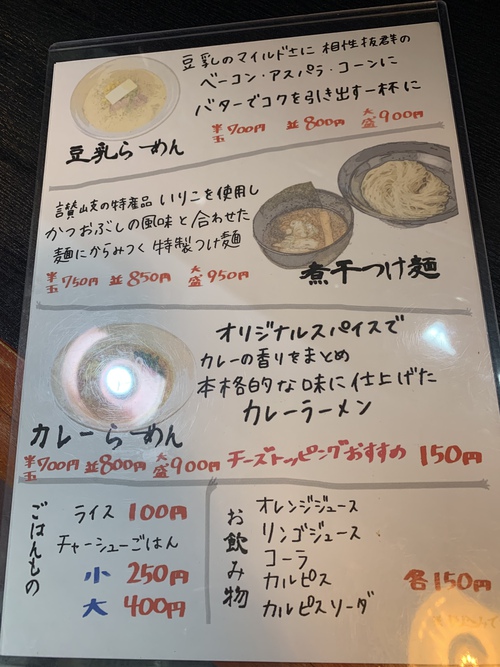 豆乳のマイルドさに 相性抜群の
ベーコン・アスパラ・コーンに
バターでコクを引き出す一杯に
半玉 700円 並 800円 大盛 900円
豆乳らーめん
讃岐の特産品 いりこを使用し
かつおぶしの風味と合わせた
麺にからみつく 特製つけ麺
半玉 750円 並 850円 大盛 950円
煮干つけ麺
オリジナルスパイスで
カレーの香りをまとめ
本格的な味に仕上げた
カレーラーメン
カレーらーめん
半玉 700円 並 800円 大盛 900円 チーズトッピングおすすめ 150円
ごはんもの
ライス 100円
チャーシューごはん
小 250円
大 400円
お飲み物
オレンジジュース
リンゴジュース
コーラ
カルピス
カルピスソーダ
各150円